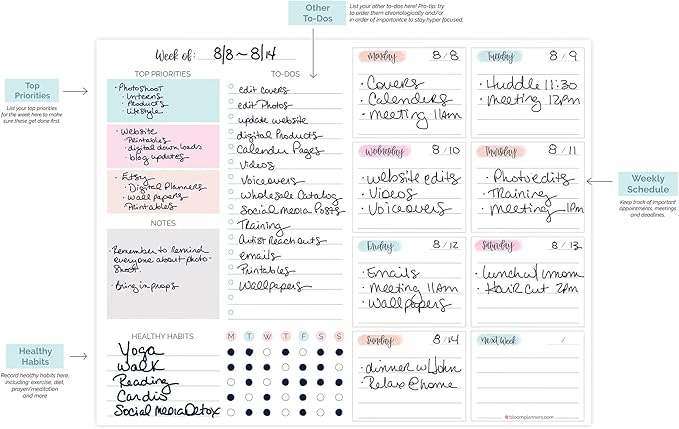 Other
To-Dos
List your other to-dos here! Pro-tip: try
to order them chronologically and/or
in order of importantce to stay hyper focused.
Top
Priorities
List your top priorities
for the week here to make
sure these get done first.
Healthy
Habits
Record healthy habits here,
including: exercise, diet,
prayer/meditation
and more
Week of: 8/8 ~ 8/14
TOP PRIORITIES
• Photoshoot
• Interns
• Products
• Lifestyle
• Website
• Printables
• digital downloads
• blog updates
• Etsy
• Digital Planners
• Wallpapers
• Printables
NOTES
• Remember to remind
everyone about photo-
shoot.
• Bring in props
TO-DOS
edit covers
edit Photos
update website
digital Products
Calendar Pages
Videos
Voiceovers
Wholesale Catalog
Social Media Posts
Training
Artist Reach outs
emails
Printables
Wallpapers
HEALTHY HABITS M T W T F S S
Yoga
Walk
Reading
Cardio
Social Media Detox
Monday 8/8
• Covers
• Calenders
• meeting 11am
Tuesday 8/9
• Huddle 11:30
• Meeting 12pm
Wednesday 8/10
• website edits
• Videos
• Voiceovers
Thursday 8/11
• Photo edits
• Training
• Meeting 1pm
Friday 8/12
• Emails
• Meeting 11am
• Wallpapers
Saturday 8/13
• lunch w/ mom
• Hair cut 2pm
Sunday 8/14
• dinner w/ John
• Relax @ home
Next Week /
bloomplanners.com
Weekly
Schedule
Keep track of important
appointments, meetings
and deadlines.